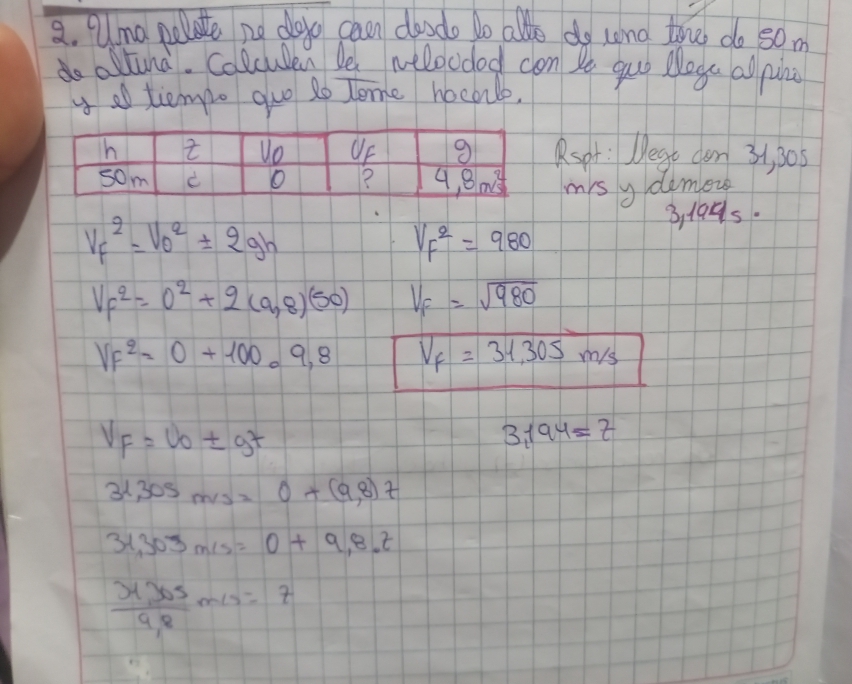 2. Una pelota se dejo caer desde lo alto de una torre de 50 m
de altura. Calcular la velocidad con la que llega al piso
y el tiempo que lo tome hacerlo.
h t Vo Vf g
50m ¿ 0 ? 4,8 m/s²
Rspt: llega con 31,305
m/s y demora
3,194s.
Vf² = Vo² ± 2gh
Vf² = 0² + 2(9,8)(50)
Vf² = 0 + 100 . 9,8
Vf² = 980
Vf = √980
Vf = 31,305 m/s
Vf = Vo ± gt
31,305 m/s = 0 + (9,8)t
31,305 m/s = 0 + 9,8.t
31,305/9,8 m/s = t
3,194 = t